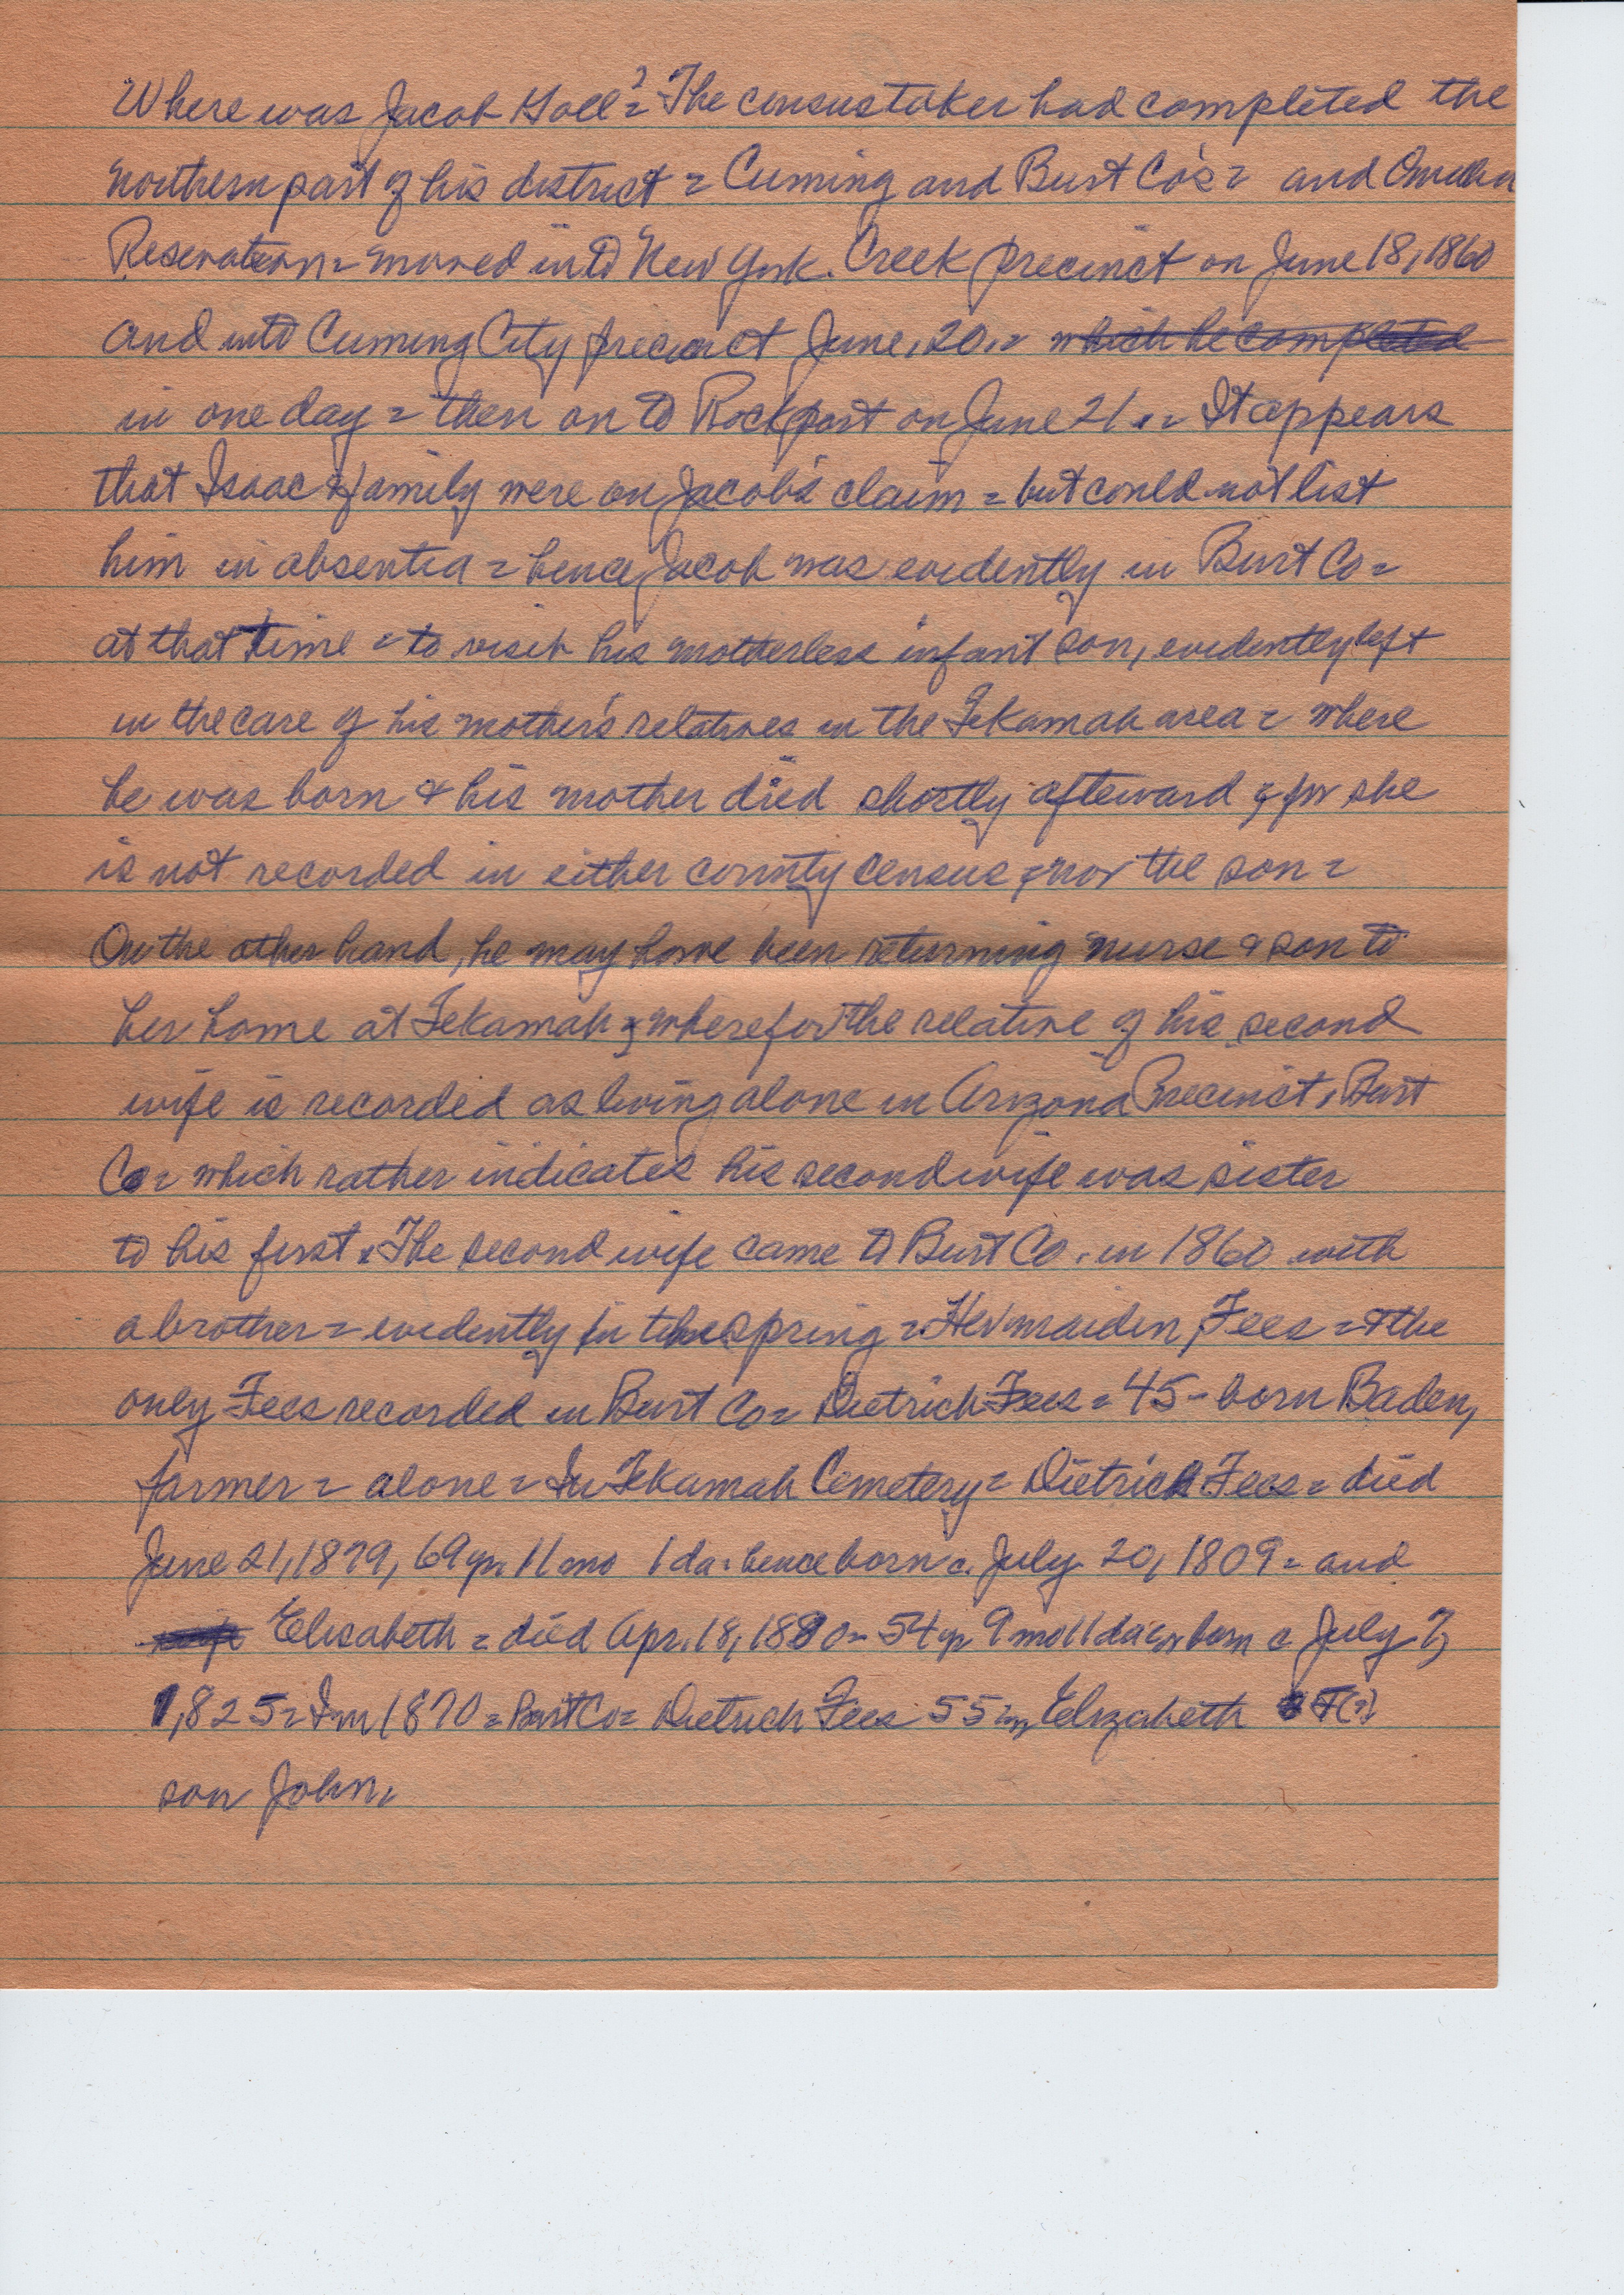 Where was Jacob Goll? = The census taker had completed the
northern part of his district = Cuming and Burt Co's = and Omaha
Reservation = moved into New York Creek precinct on June 18, 1860
and into Cuming City precinct June, 20, = which he completed
in one day = then on to Rockport on June 21. = It appears
that Isaac & family were on Jacob's claim = but could not list
him in absentia = hence Jacob was evidently in Burt Co =
at that time = to visit his motherless infant son, evidently left
in the care of his mother's relatives in the Tekamah area = where
he was born & his mother died shortly afteward = for she
is not recorded in either county census = nor the son =
On the other hand, he may have been returning nurse & son to
her home at Tekamah = where for the relative of his second
wife is recorded as living alone in Arizona Precinct, Burt
Co = which rather indicates his second wife was sister
to his first. The second wife came to Burt Co. in 1860 with
a brother = evidently in the spring = Her maiden, Fees = & the
only Fees recorded in Burt Co = Dietrich Fees = 45 - born Baden,
farmer = alone = In Tekamah Cemetery = Dietrich Fees = died
June 21, 1879, 69 yr. 11 mo 1 da = hence born c. July 20, 1809 = and
Elisabeth = died Apr. 18, 1880 = 54 yr 9 mo 11 da = born c July 7,
1,825 = In 1870 = Burt Co = Dietrich Fees 55 = Elizabeth (?)
son John.